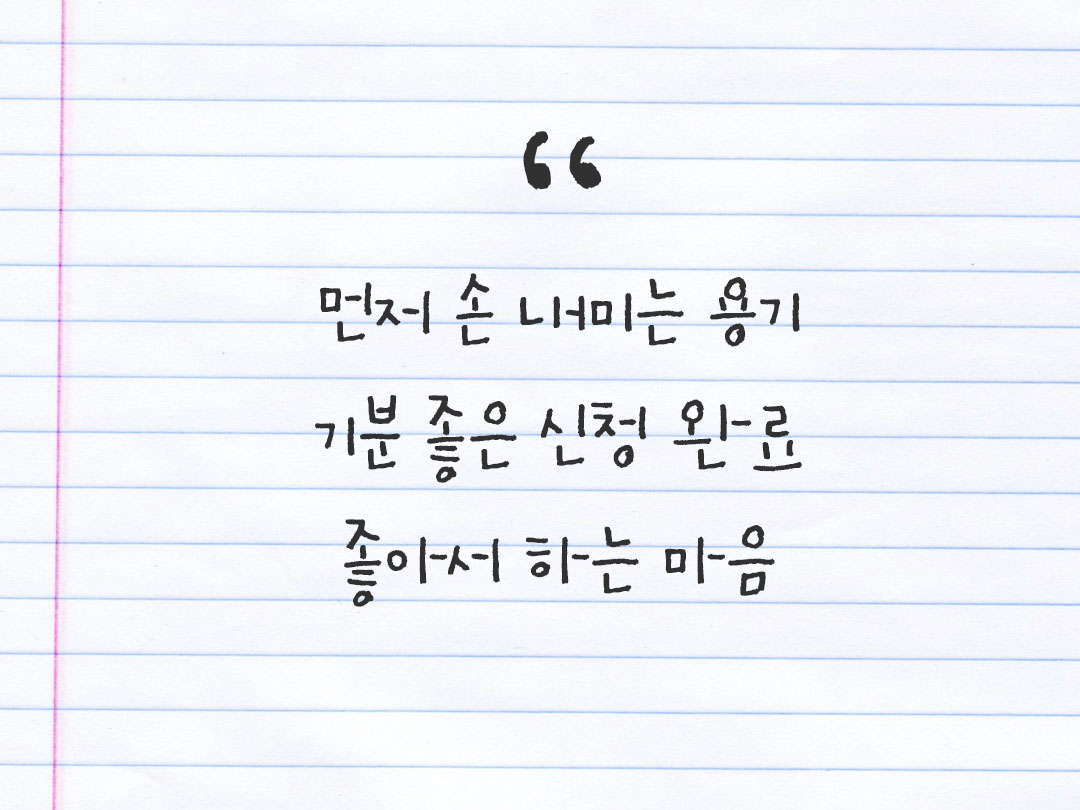 “
먼저 손 내미는 용기
기분 좋은 신청 완료
좋아서 하는 마음